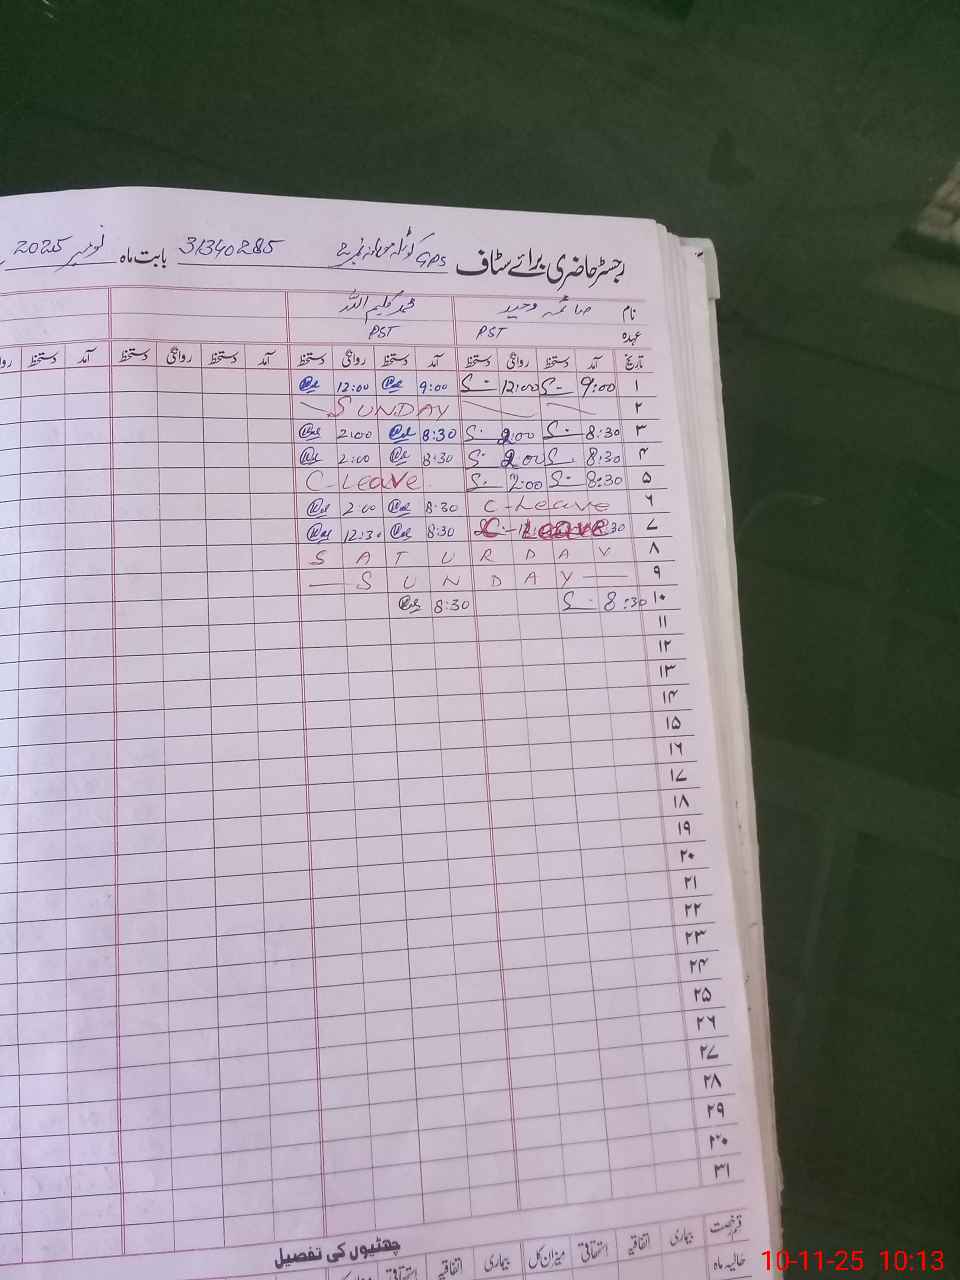 رجسٹر حاضری برائے سٹاف GPS کوٹلہ نمبر 2 31340285 بابت ماہ نومبر 2025
نام صائمہ وحید محمد کلیم اللہ
عہدہ PST PST
تاریخ آمد دستخط روانگی دستخط آمد دستخط روانگی دستخط آمد دستخط روانگی دستخط آمد دستخط
۱ 9:00 S 12:00 S 9:00 12:00
۲ SUNDAY
۳ 8:30 S 2:00 S 8:30 2:00
۴ 8:30 S 2:00 S 8:30 2:00
۵ 8:30 S 2:00 S C-Leave
۶ C-Leave 8:30 2:00
۷ C-Leave 8:30 12:30
۸ SATURDAY
۹ SUNDAY
۱۰ 8:30 S 8:30
۱۱
۱۲
۱۳
۱۴
۱۵
۱۶
۱۷
۱۸
۱۹
۲۰
۲۱
۲۲
۲۳
۲۴
۲۵
۲۶
۲۷
۲۸
۲۹
۳۰
۳۱
قسم رخصت بیماری اتفاقیہ استحقاقی میزان کل بیماری اتفاقیہ استحقاقی
چھٹیوں کی تفصیل
حالیہ ماہ
10-11-25 10:13